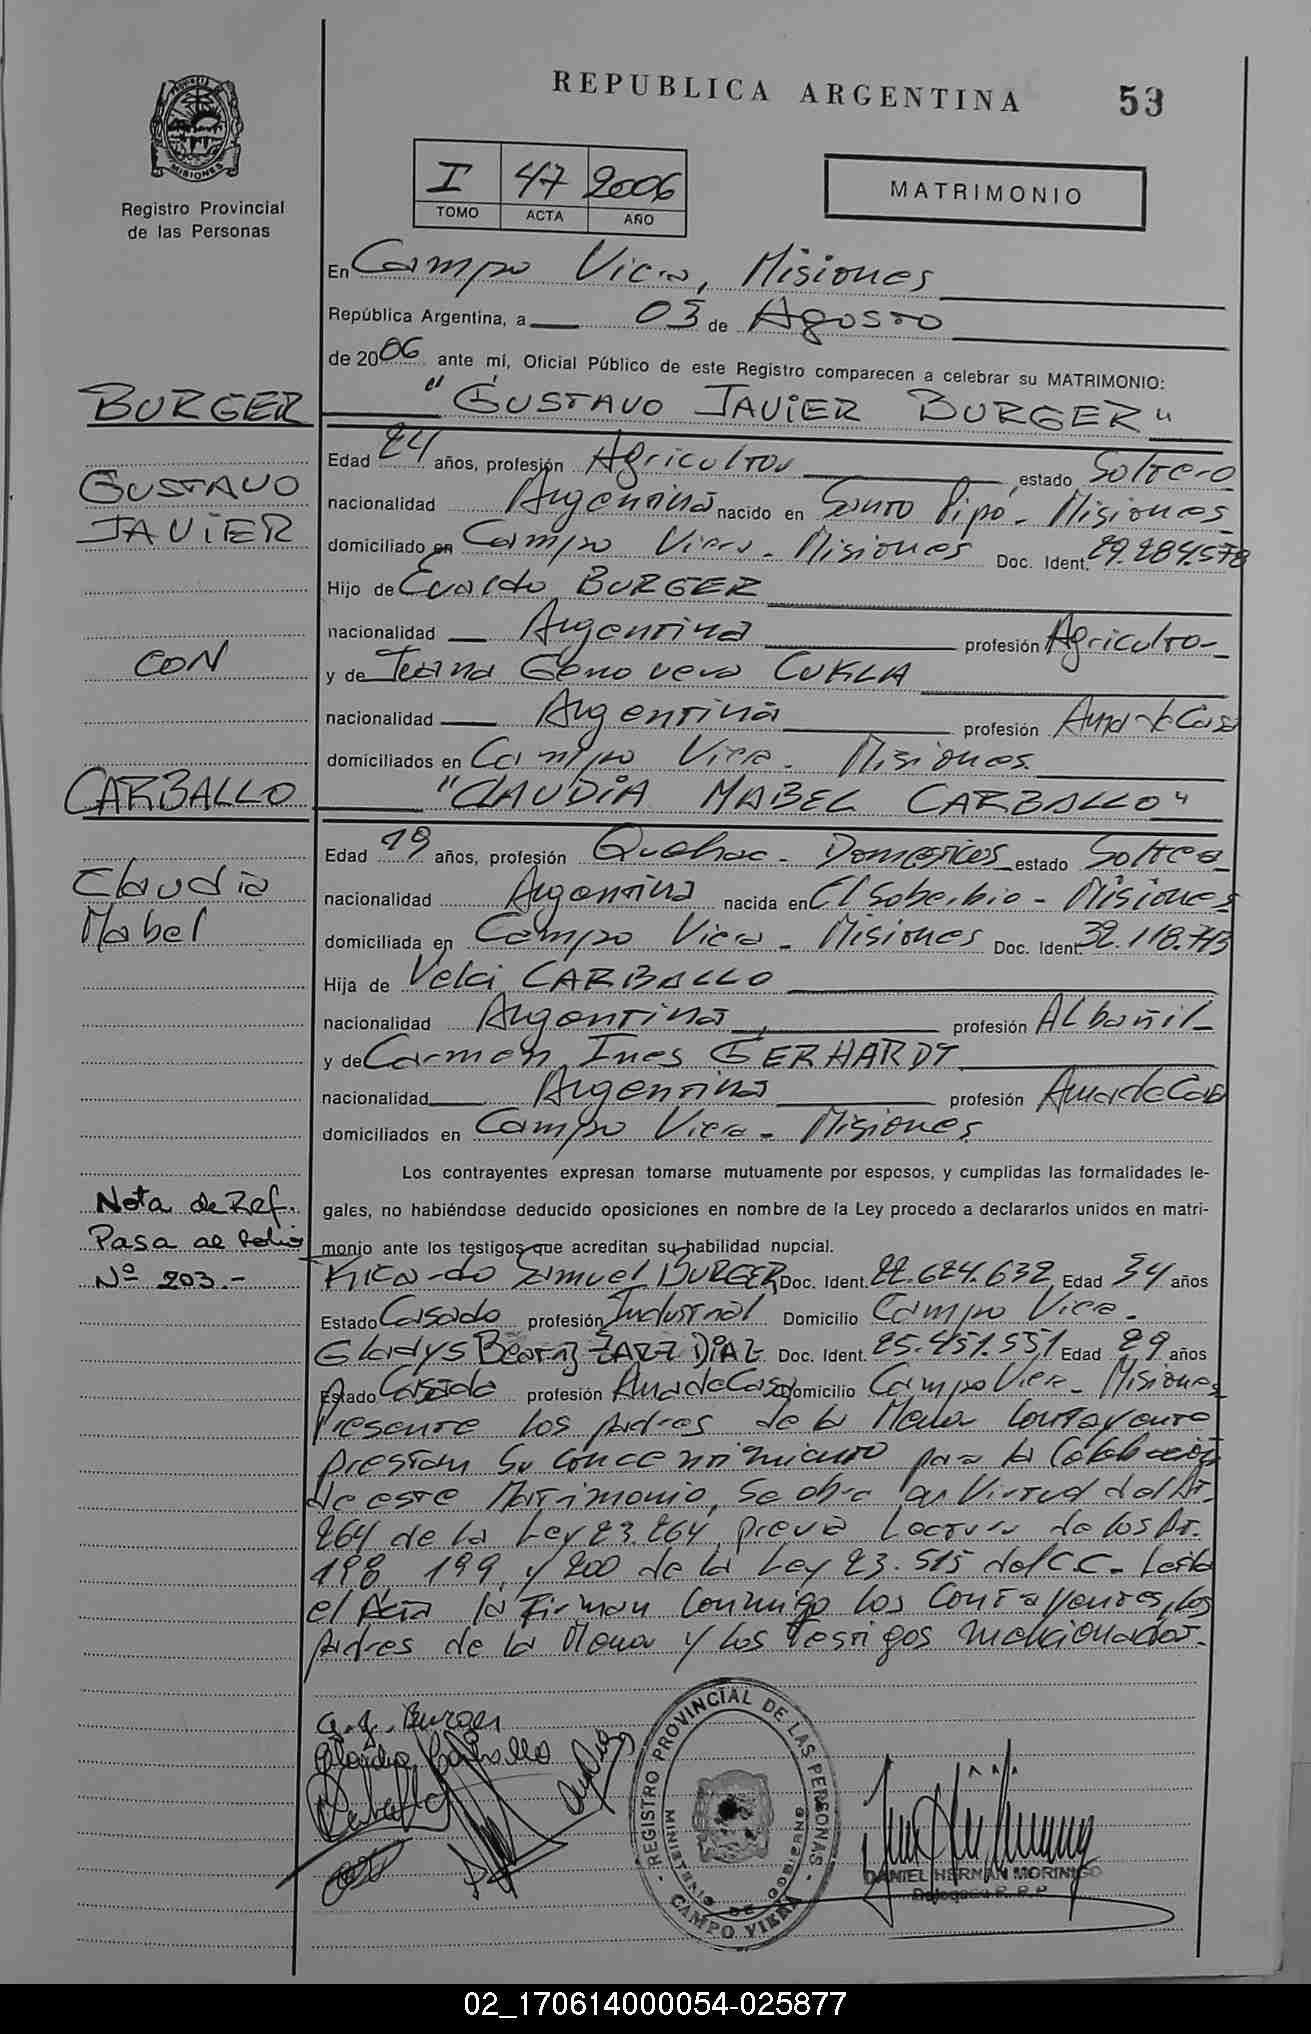 REPUBLICA ARGENTINA
53
PROVINCIA DE MISIONES
Registro Provincial
de las Personas
I 47 2006
TOMO ACTA AÑO
MATRIMONIO
En Campo Viera, Misiones
República Argentina, a 03 de Agosto
de 2006 ante mí, Oficial Público de este Registro comparecen a celebrar su MATRIMONIO:
BURGER
"GUSTAVO JAVIER BURGER"
Edad 24 años, profesión Agricultor estado Soltero
GUSTAVO
nacionalidad Argentina nacido en Santo Pipó - Misiones
JAVIER
domiciliado en Campo Viera - Misiones Doc. Ident. 29.284.578
Hijo de Evaldo BURGER
nacionalidad Argentina profesión Agricultor
CON
y de Juana Genoveva CUKLA
nacionalidad Argentina profesión Ama de Casa
domiciliados en Campo Viera - Misiones
CARBALLO
"CLAUDIA MABEL CARBALLO"
Edad 19 años, profesión Quehac. Domesticos estado Soltera
Claudia
nacionalidad Argentina nacida en El Soberbio - Misiones
Mabel
domiciliada en Campo Viera - Misiones Doc. Ident. 32.118.
Hija de Velci CARBALLO
nacionalidad Argentina profesión Albañil
y de Carmen Ines GERHARDT
nacionalidad Argentina profesión Ama de Casa
domiciliados en Campo Viera - Misiones
Los contrayentes expresan tomarse mutuamente por esposos, y cumplidas las formalidades le-
Nota de Ref.
gales, no habiéndose deducido oposiciones en nombre de la Ley procedo a declararlos unidos en matri-
Pasa al folio
monio ante los testigos que acreditan su habilidad nupcial.
Nº 203.-
Ricardo Samuel BURGER Doc. Ident. 22.624.632 Edad 34 años
Estado Casado profesión Industrial Domicilio Campo Viera -
Gladys Beatriz DIAZ Doc. Ident. 25.451.551 Edad 29 años
Estado Casada profesión Ama de Casa Domicilio Campo Viera - Misiones
Presente los padres de la Menor Contrayente
prestan su para la Celebración
de este Matrimonio, se obra en Virtud del Art.
264 de la Ley 23.264, previa Lectura de los Art.
198, 199, y 200 de la Ley 23.515 del C.C. - Leida
el Acta la Firman Conmigo los Contrayentes, los
padres de la Menor y los Testigos mencionados.
G. J. Burger
Claudia Carballo
REGISTRO PROVINCIAL DE LAS PERSONAS
MINISTERIO DE GOBIERNO
CAMPO VIERA
DANIEL HERNAN MORINIGO
Delegado R.P.P.
02_170614000054-025877